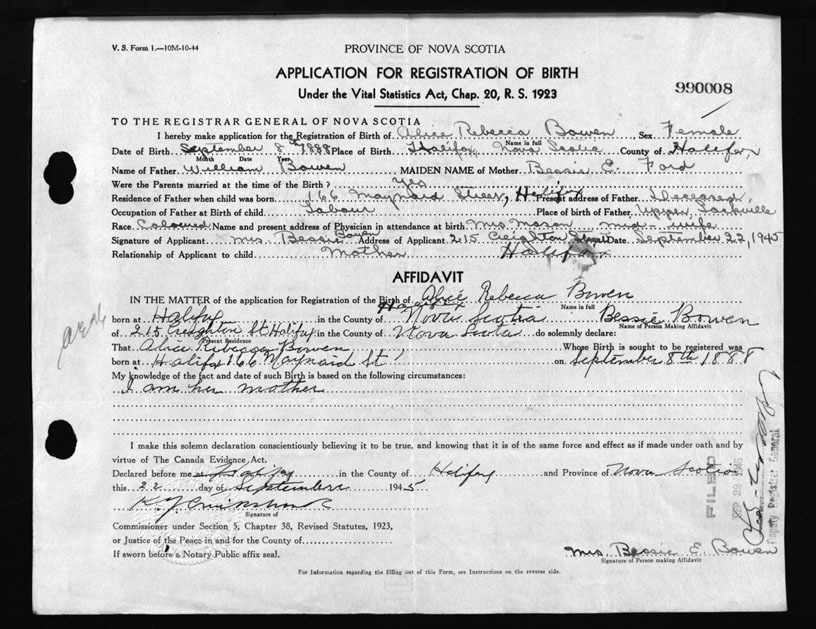 V. S. Form 1.—10M-10-44
PROVINCE OF NOVA SCOTIA
APPLICATION FOR REGISTRATION OF BIRTH
990008
Under the Vital Statistics Act, Chap. 20, R. S. 1923
TO THE REGISTRAR GENERAL OF NOVA SCOTIA
I hereby make application for the Registration of Birth of Alice Rebecca Bowen, Sex Female
Name in full
Date of Birth September 8th 1888 Place of Birth Halifax, Nova Scotia County of Halifax
Month Date Year
Name of Father William Bowen MAIDEN NAME of Mother Bessie E. Ford
Were the Parents married at the time of the Birth? Yes
Residence of Father when child was born 166 Maynard Street, Halifax Present address of Father Deceased
Occupation of Father at Birth of child Labour Place of birth of Father Upper Sackville
Race Coloured Name and present address of Physician in attendance at birth Mrs. Mason mid-wife
Signature of Applicant Mrs. Bessie Bowen Address of Applicant 215 Creighton Street Date September 22, 1945
Relationship of Applicant to child Mother Halifax
AFFIDAVIT
IN THE MATTER of the application for Registration of the Birth of Alice Rebecca Bowen
Name in full
born at Halifax in the County of Nova Scotia Bessie Bowen
Name of Person Making Affidavit
of 215 Creighton St Halifax in the County of Nova Scotia do solemnly declare:
Present Residence
That Alice Rebecca Bowen Whose Birth is sought to be registered was
born at Halifax 166 Maynard St on September 8th 1888
My knowledge of the fact and date of such Birth is based on the following circumstances:
I am her mother
I make this solemn declaration conscientiously believing it to be true, and knowing that it is of the same force and effect as if made under oath and by
virtue of The Canada Evidence Act.
Declared before me Halifax in the County of Halifax and Province of Nova Scotia
this 22 day of September 1945
Signature of
Commissioner under Section 5, Chapter 38, Revised Statutes, 1923,
or Justice of the Peace in and for the County of
If sworn before a Notary Public affix seal.
Mrs. Bessie E Bowen
Signature of Person making Affidavit
For Information regarding the filling out of this Form, see Instructions on the reverse side.
FILED
Deputy Registrar General